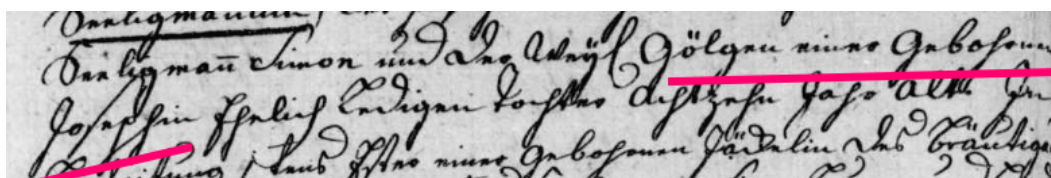 Seeligmannin
Seeligman̄ Simon und der Weyl Gölgen einer Gebohrnen
Josephin Ehelich Ledigen Tochter Achtzehn Jahr Alt. In
Ester einer Gebohrnen Jädelin des Bräutiga